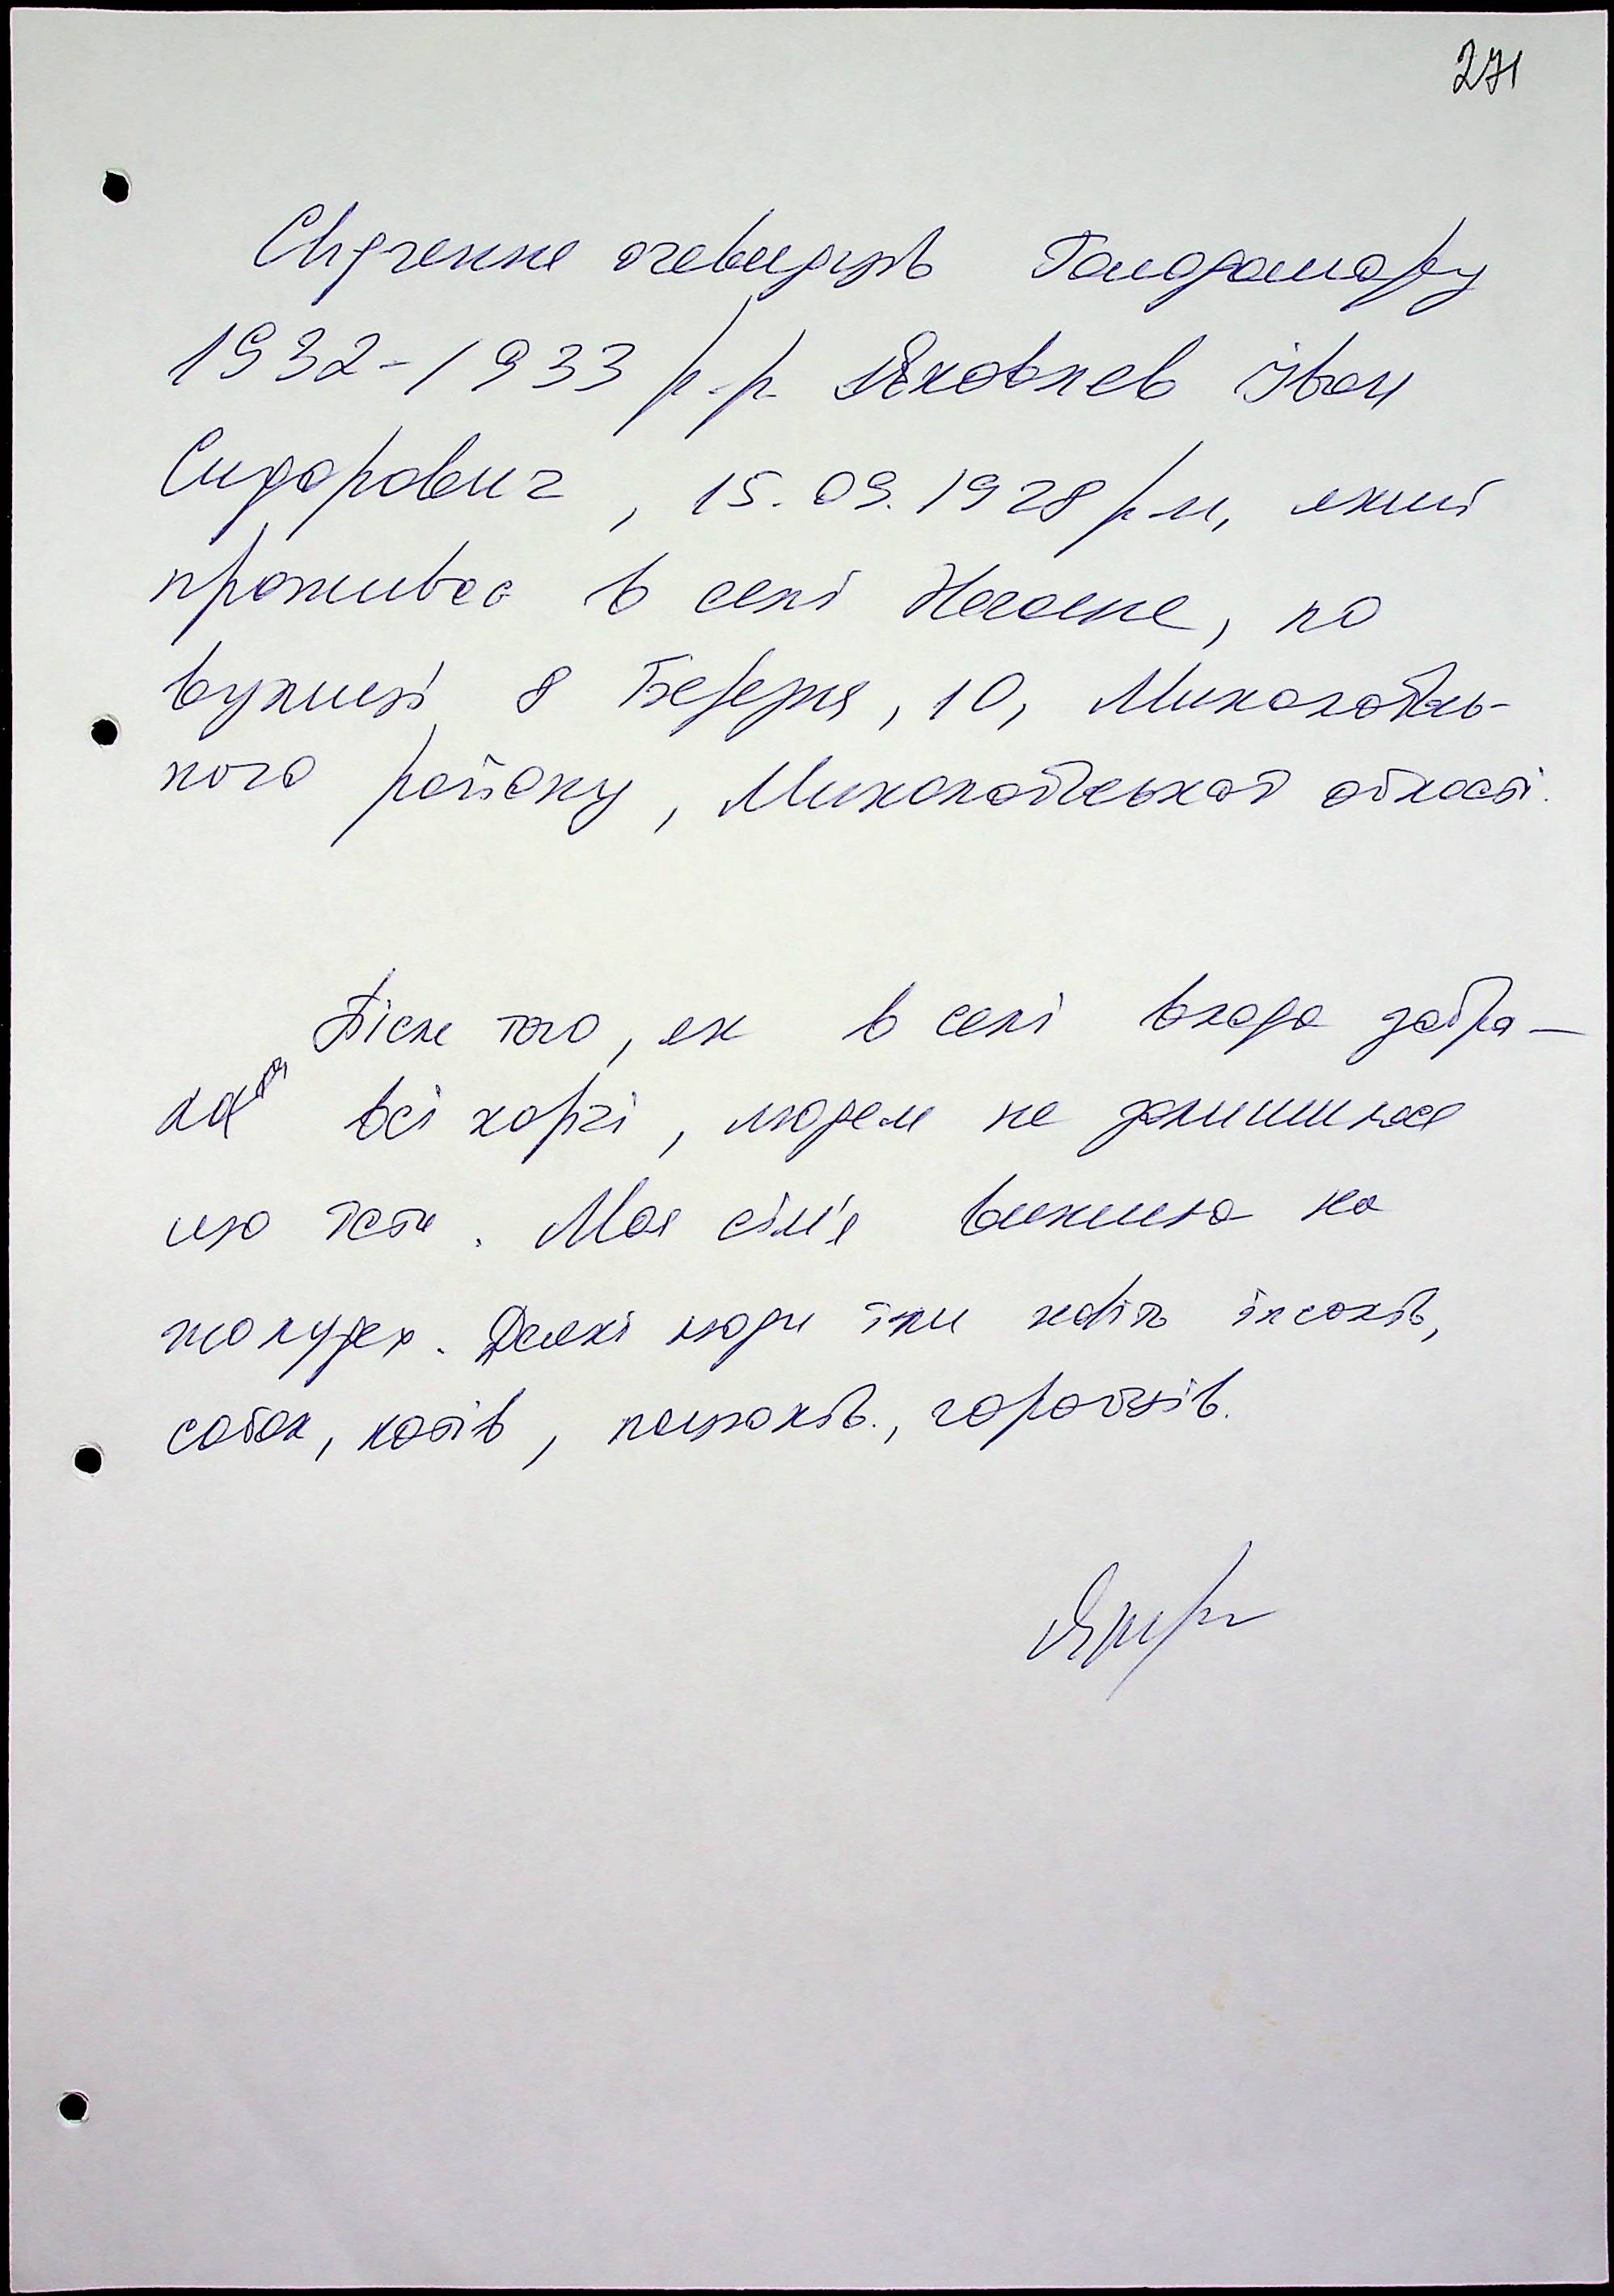 271
Свідчення очевидців Голодомору
1932-1933 р.р. Яковлев Іван
Сидорович, 15.09.1928 р.н, який
проживає в селі Нечаяне, по
вулиці 8 Березня, 10, Миколаївсь-
кого району, Миколаївської області.
Після того, як в селі влада забра-
ла всі харчі, людям не залишилося
що їсти. Моя сім'я вижила на
жолудях. Деякі люди їли навіть їжаків,
собак, котів, пацюків, горобців.